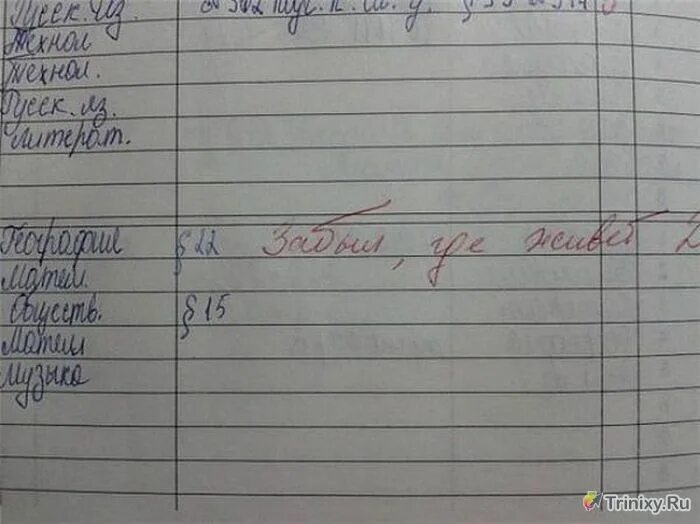 Русск. яз.
Технол
Технол.
Русск. яз.
Литерат.
География § 22 Забыл, где живёт 2
Матем.
Обществ. § 15
Матем
Музыка
Trinixy.Ru